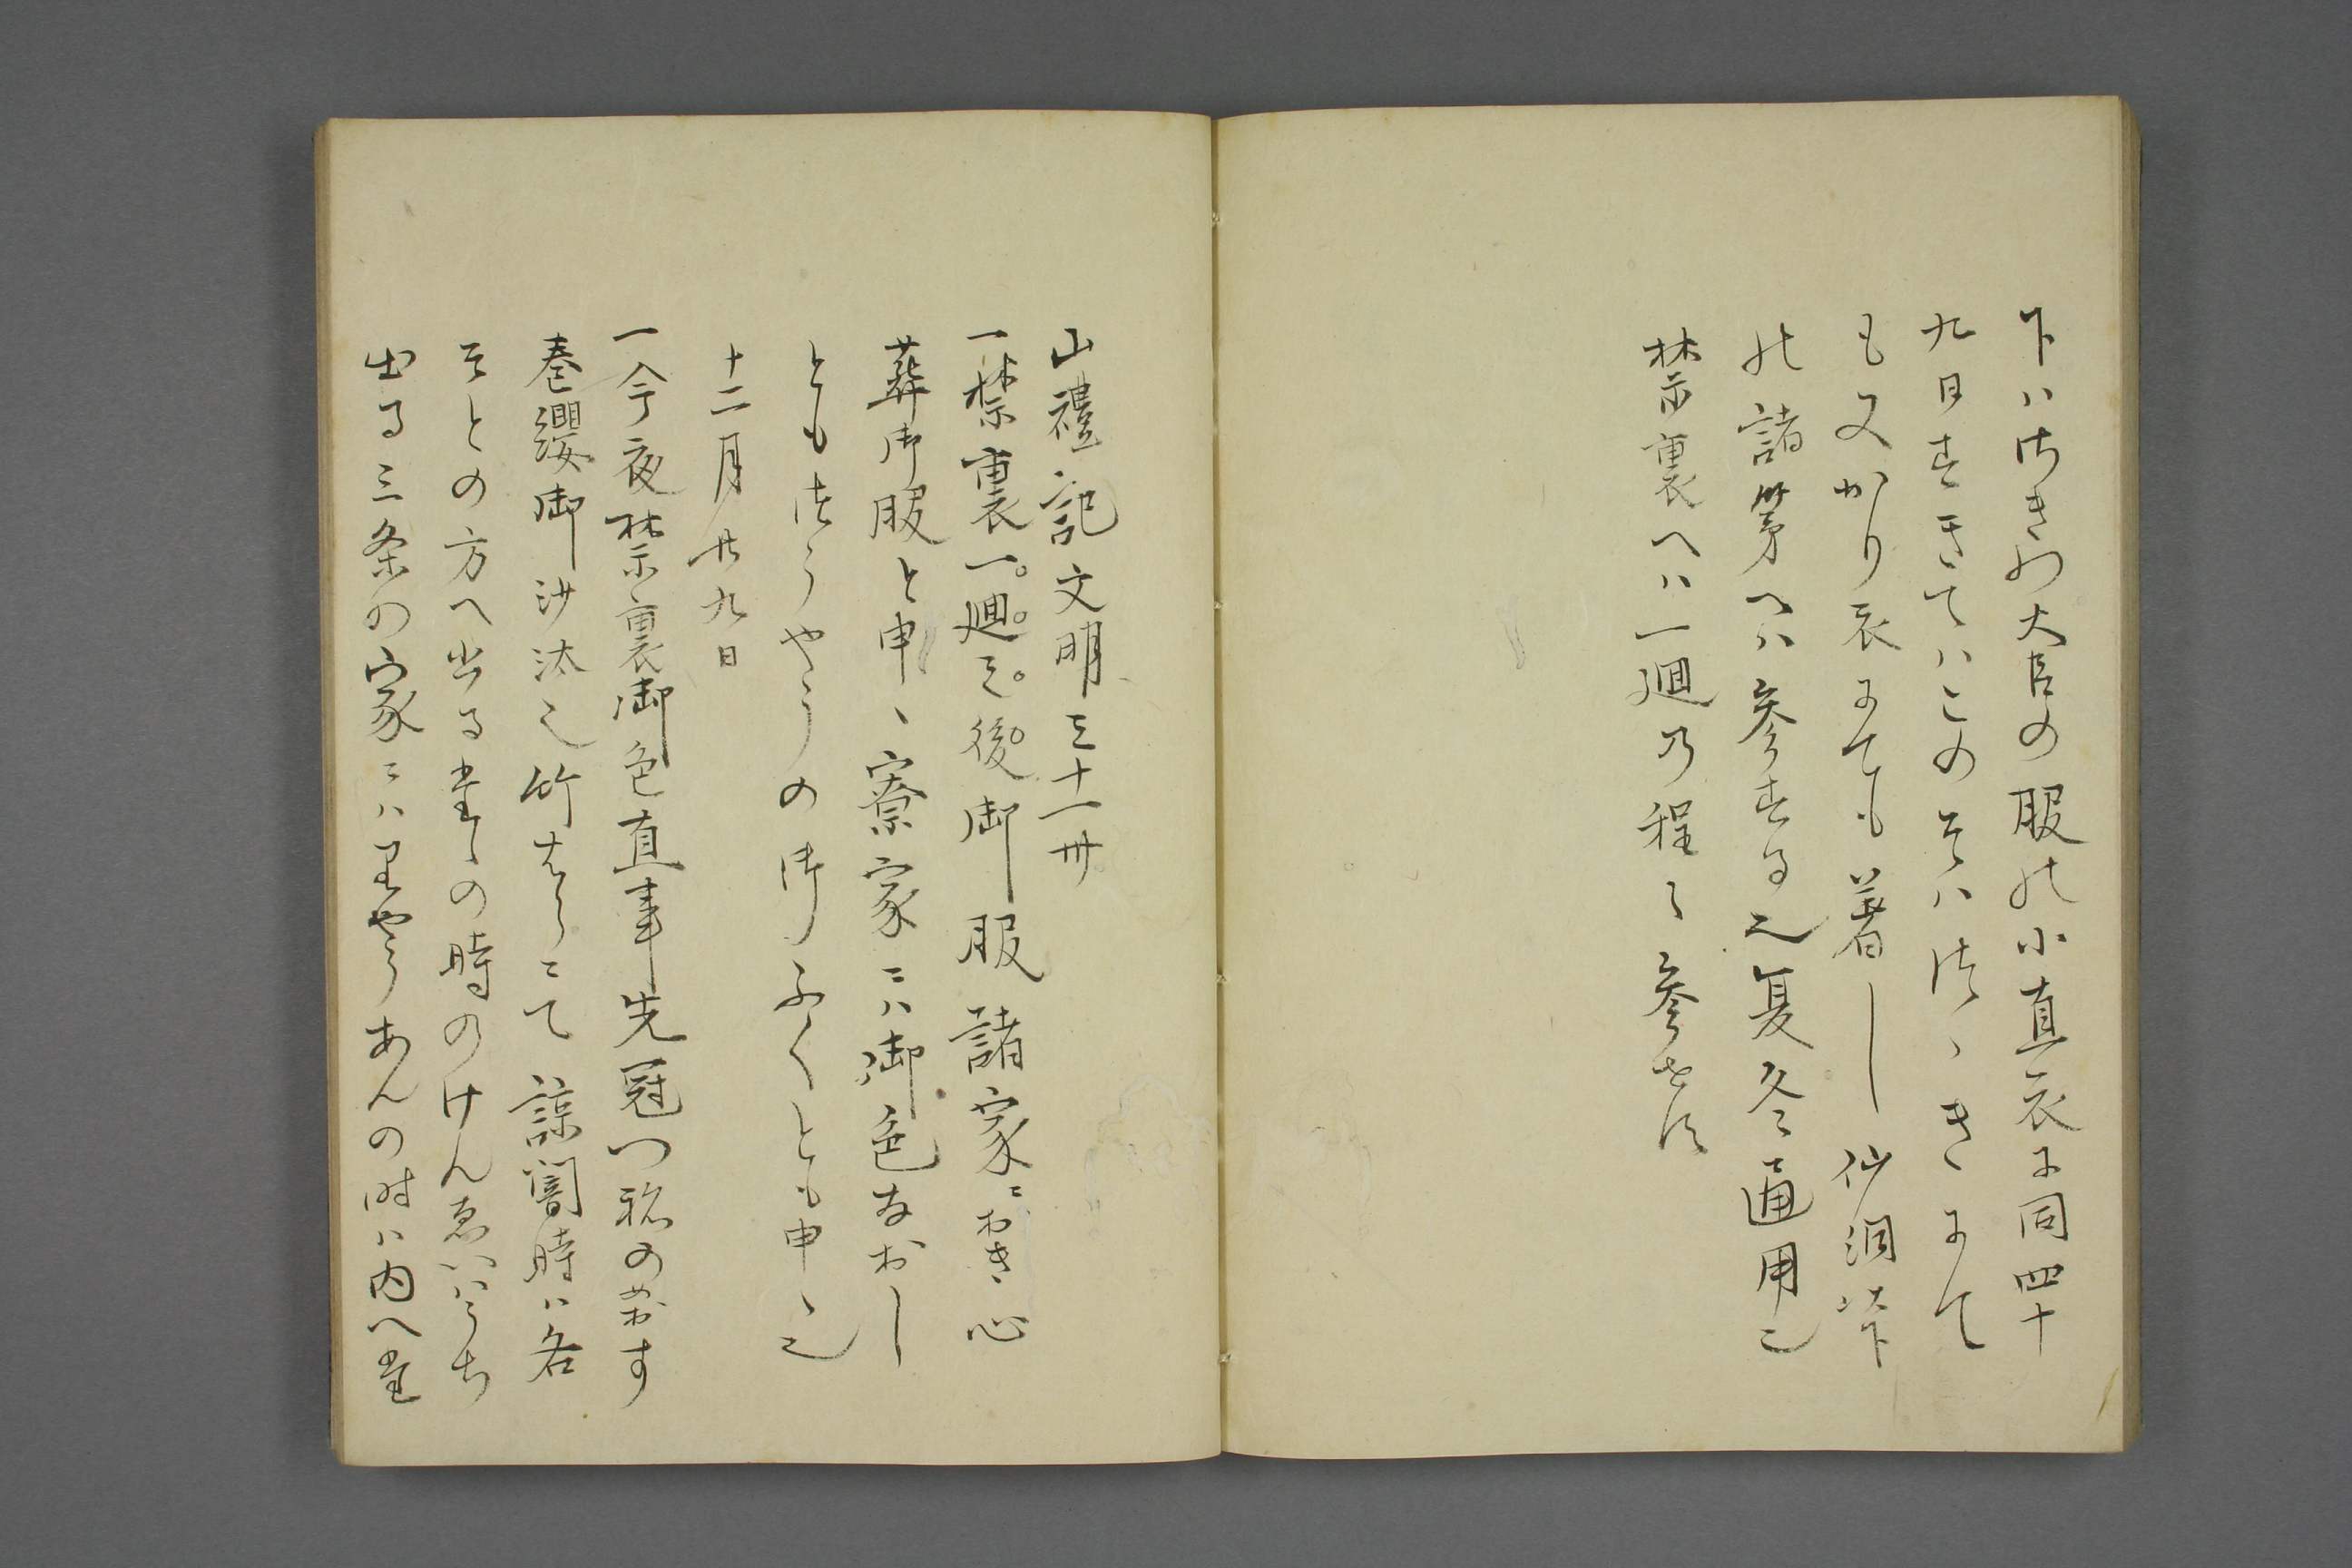 下ハはきの大臣の服の小直衣に同四十
九日すきてハこのそハつゝきにて
も又かり衣にても著し仙洞以下
の諸第へハ参する也夏冬通用也
禁裏へハ一廻の程ハ参せす
山禮記文明三十一卅
一禁裏一廻之後御服諸家ニわきゝ心
葬御服と申、寮家ニハ御色なおし
ともほうやうの御ふくとも申、也
十二月廿九日
一今夜禁裏御色直事先冠ハ祢のめおす
巻纓御沙汰也竹はしらニて諒闇時ハ各
そとの方へ出る堂上の時のけんゑいハうち
出る三条の家ニハりやうあんの時ハ内へ堂